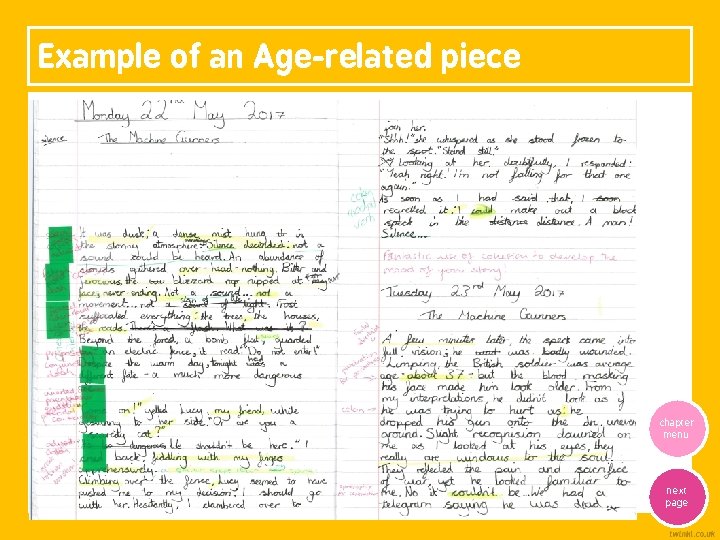 Example of an Age-related piece
Monday 22nd May 2017
silence
The Machine Gunners
it was dusk; a dense mist hung to in
the stormy atmosphere. Silence descended: not a
sound could be heard. An abundance of
clouds gathered over-head-nothing. Bitter and
ferocious, the blizzard nipped at my
face, never ending. Not a sound... not a
movement... not a
suffocated everything: the trees, the houses,
the roads. There's a flash. What was it?
Beyond the forest, a bomb that guarded
an electric fence, it read "Do not enter!"
the warm day, tonight was a
different fate - a much more dangerous
on!" yelled Lucy, my friend, white
to her side. "Or are you a
cat?"
shouldn't be here." I
back, fiddling with my fingers
apprehensively.
Climbing over the fence, Lucy seemed to have
pushed me to my decision: I should go
with her. Hesitantly, I clambered over to
join her.
"Shhh!" she whispered as she stood frozen to
the spot. "Stand still."
Looking at her doubtfully, I responded:
"Yeah right! I'm not falling for that one
again."
As soon as I had said that, I soon
regretted it: I could make out a black
speck in the distance distance. A man!
Silence...
colon
modal
verb
Fantastic use of cohesion to develop the
mood of your story
Tuesday 23rd May 2017
The Machine Gunners
A few minutes later, the speck came into
full vision; he was badly wounded.
Limping, the British soldier was average
age about 5'7 - but the blood masking
his face made him look older. From
my interpretations, he didn't look as if
he was trying to hurt us: he
colon
dropped his gun onto the uneven
ground. Slight recognision dawned on
me as I looked at his eyes, they
really are windows to the soul!
They reflected the pain and sacrifice
of war, yet he looked familiar to
me. No it couldn't be... We had a
telegram saying he was dead.
chapter
menu
next
page
twinkl.co.uk